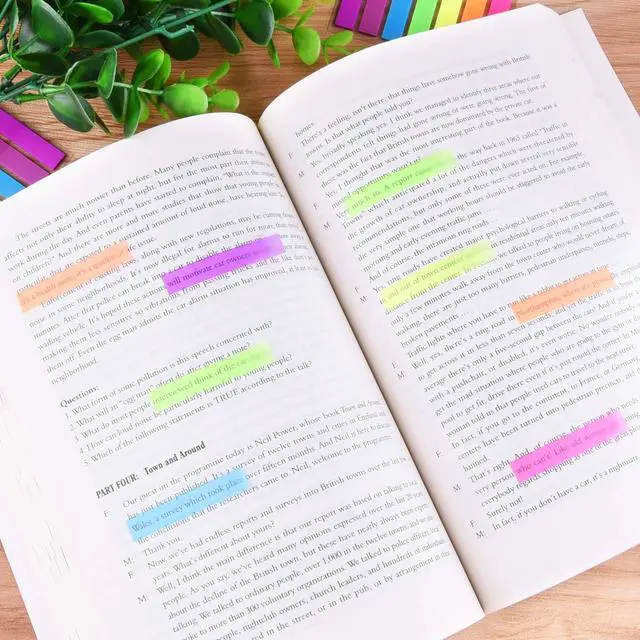 The streets are much noisier than before. Many people complain that the
affects not only their ability to sleep at night, but for the most part their
work during the day. And even parents have started to complain. "What is the
our children?" And there are more and more studies that show that young people
been exposed to a sustained amount of loud noise, have hearing
It's a health issue, it's a quality of issue.
along with new regulations, may be cutting
noise in some neighborhoods. It's now illegal for alarms to run for more than
minutes. After that police can break into
wailing vehicle. It's hoped these actions will motivate car owners
making them less sensitive so vibrations from passing trucks and the like don't
them off. Even the egg man admits the car alarm situation has improved, at least
neighborhood.
Questions:
1. What form of noise pollution is this speech concerned with?
2. What will an "egg man" do after giving a note?
3. What do most people interviewed think of the car
4. How can loud noise be particularly harmful to young people?
5. Which of the following statements is TRUE according to the talk?
PART FOUR: Town and Around
F: Our guest on the programme today is Neil Power, whose book Town and Around
has been published. It's a survey of twelve towns and cities in England and
Wales, a survey which took place over fifteen months. And Neil is here to discuss
the conclusions that the researchers came to. Neil, welcome to the programme.
M: Thank you.
F: Now, we've had endless reports and surveys into British towns over the last
years. What's different about yours?
M: Well, I think the main difference is that our report was based on talking to
people. As you say, we've heard many opinions expressed over the last 20 years
about the decline of the British town, but these have nearly always been
talking. We talked to ordinary people, over 1,000 in the twelve towns and
spoke to more than 300 voluntary organizations. We talked to police officers,
people, nightclub owners, church leaders, and hundreds of individual
in the street, or in the pub, or by arrangement in the
homes.
F: There's a feeling, isn't there, that things have somehow gone wrong with British
towns. Is that what people told you?
M: Yes, broadly speaking yes. I think we managed to identify three areas where our
correspondents felt things had gone wrong or were going wrong. The first of
these was the fact that British towns are now dominated by the private car.
F: Yes, I thought that was the most interesting part of the book. Because it was a
much so. A report came way back in 1963 called 'Traffic in
anticipated a lot of the dangers which were threatened by
the growth of car ownership, and actually put down several very sensible
recommendations, but only some of these were ever acted on. For example,
a very simple one that working hours should be staggered to avoid the early
morning and early evening traffic jams.
F: And of course, the infamous ring roads.
psychological barriers to walking or cycling
in and out of town centres residential areas only ten minutes walking
time from the we talked to people living on housing estates
just a few minutes walk away from the town centre who would never dream of
walking, there are just too many barriers, pedestrian underpasses, tunnels,
broken pavements.
F: Traffic lights where you have to
M: Well, yes, there's a ring road in Northampton, where it's
to get across it in less than seven minutes, and yet the traffic
average there's only a five-second gap between the cars. And if you're
with a pushchair, or disabled, it's even worse. No wonder people
get the mad situation where people who are going to the gym or
pool to get fit, drive there even if it's just around the corner.
woman told us that people used cars to travel to the next street
F: In fact, if you go to the continent, in France, or Germany
centres have been turned into pedestrian precincts, and
banned.
M: That's right. And, of course, the people
very person who can't! Like old
everybody
F: Surely not!
M: In fact, if you don't have a car, it's a nightmare